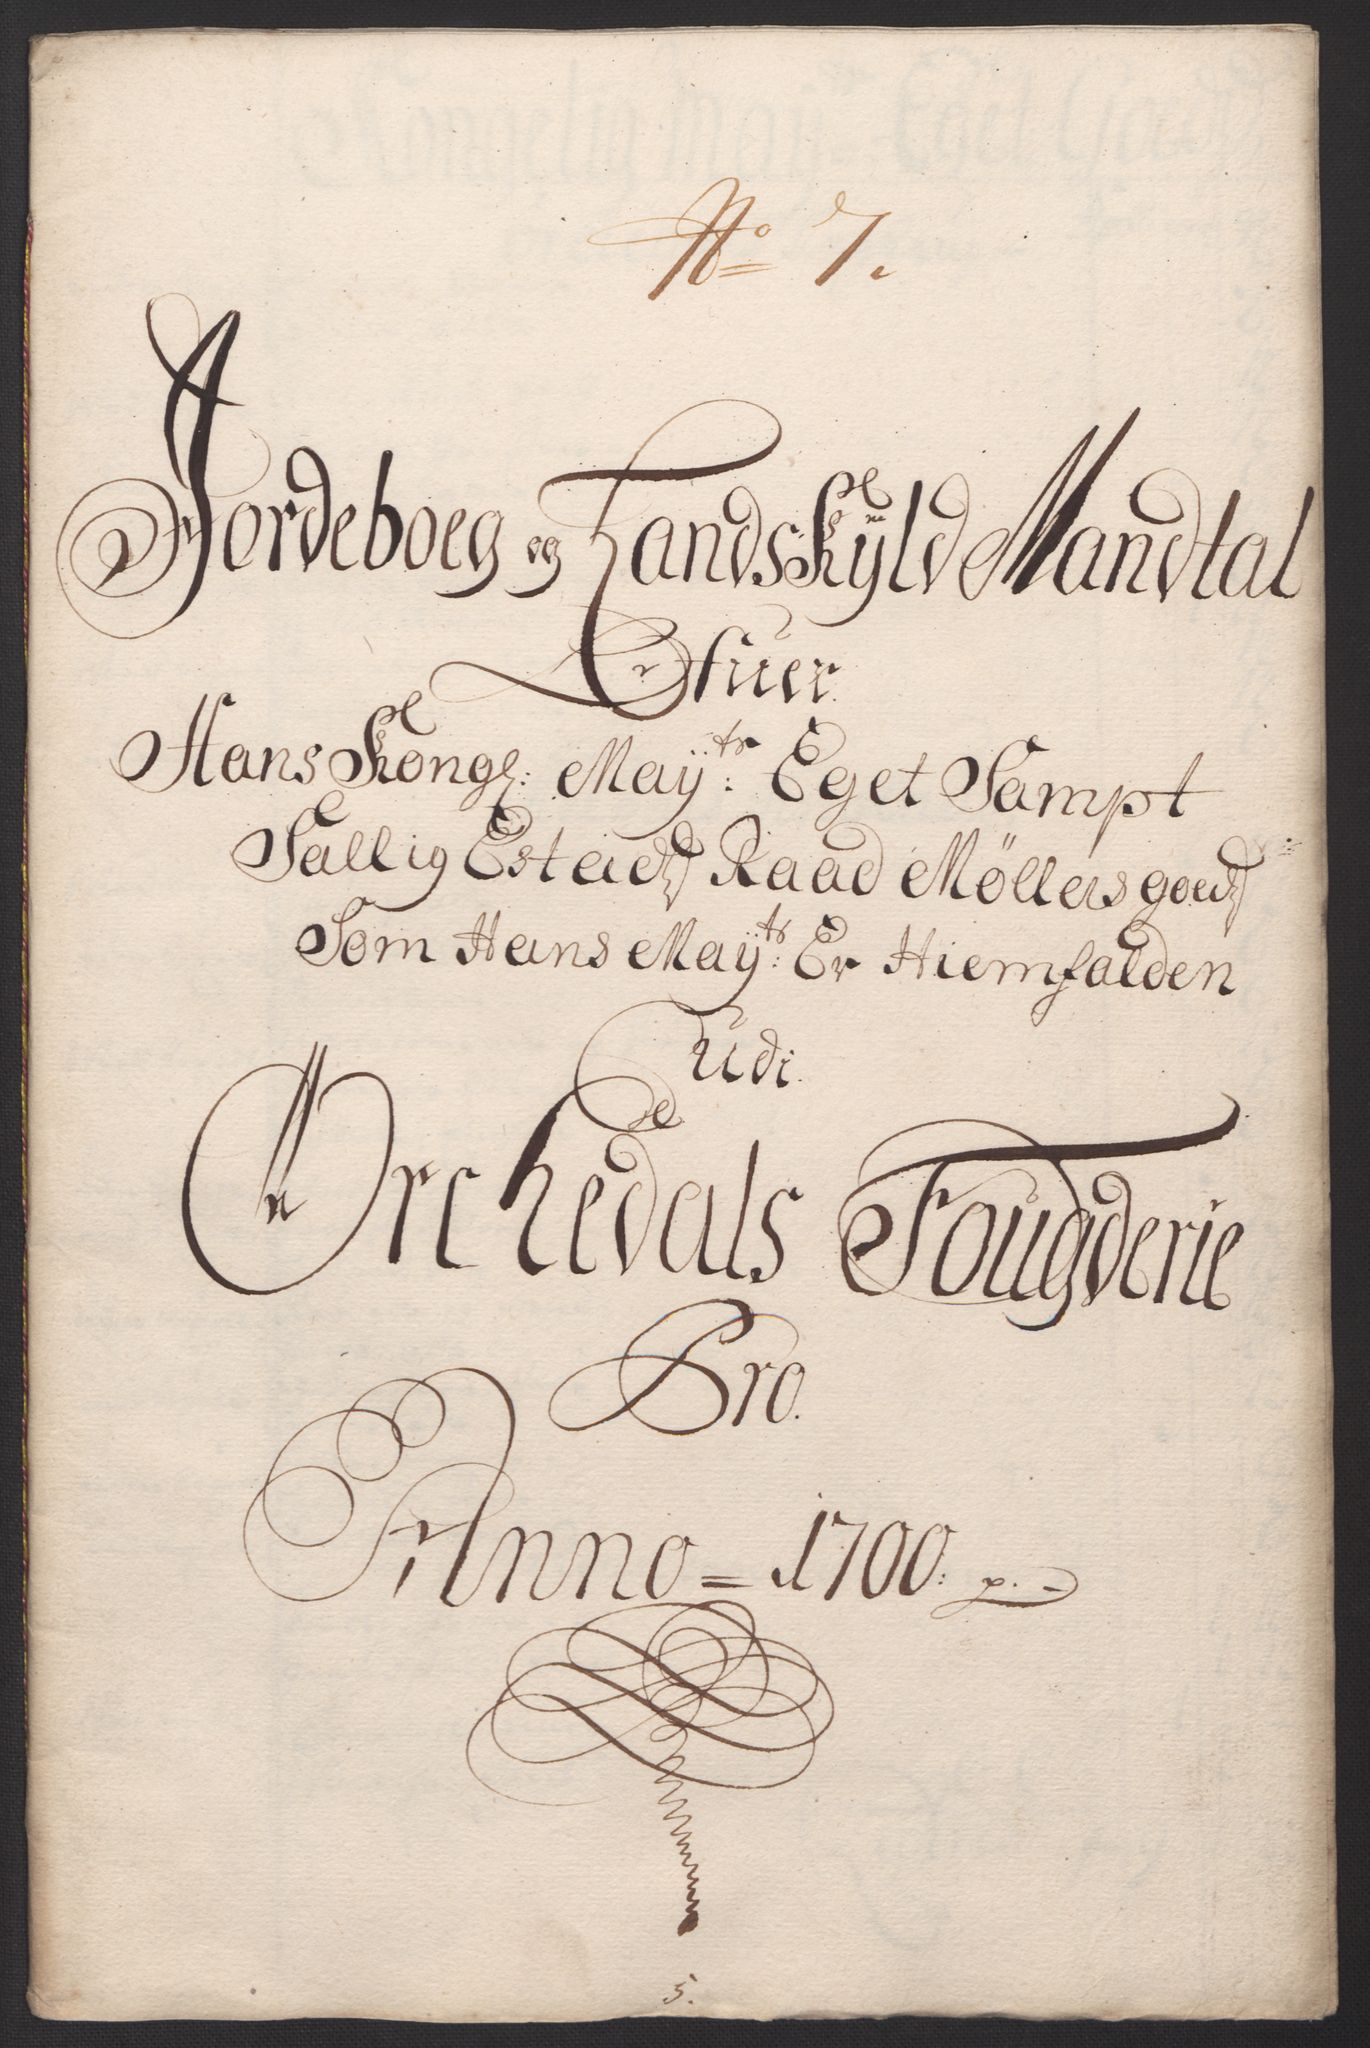 No 7.
Jordeboeg og Landskÿld Mandtal
Ofuer.
Hans Kongl: Maÿtz: Eget Sampt
Sallig Estatz Raad Möllers goedz
Som Hans Maÿtz: Er Hiemfalden
Udi.
Orchedals Fougderie
Pro.
Anno = 1700. p. -
5.